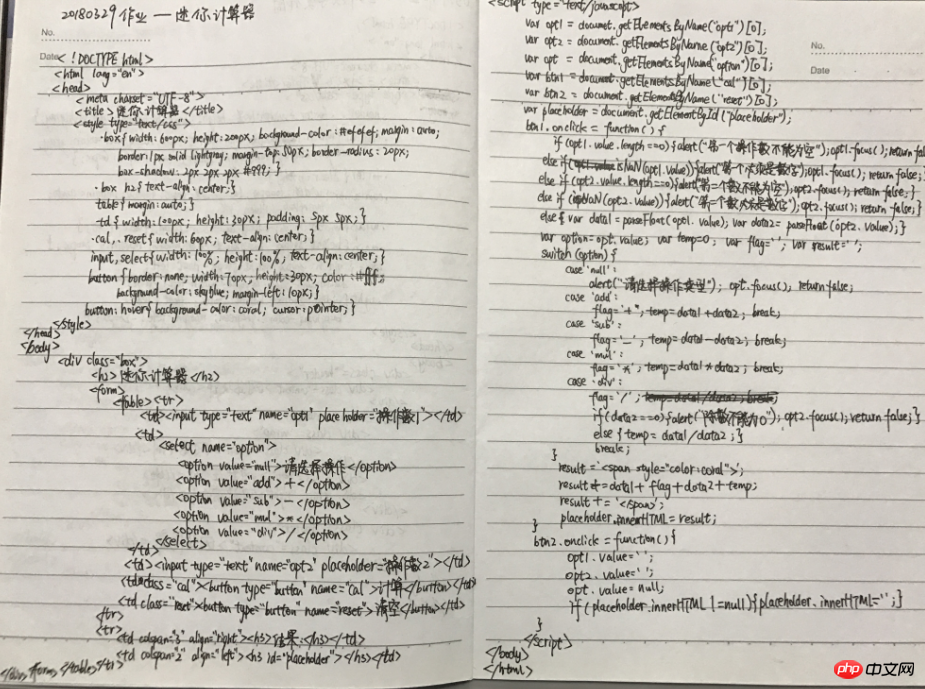 20180329作业 — 迷你计算器
No.
Date
<!DOCTYPE html>
<html lang="en">
<head>
<meta charset="UTF-8">
<title>迷你计算器</title>
<style type="text/css">
.box{width:600px; height:200px; background-color:#efefef; margin:auto;
border:1px solid lightgray; margin-top:50px; border-radius:20px;
box-shadow:2px 2px 2px #999;}
.box h2{text-align:center;}
table{margin:auto;}
td{width:100px; height:30px; padding:5px 5px;}
.cal,.reset{width:60px; text-align:center;}
input,select{width:100%; height:100%; text-align:center;}
button{border:none; width:70px; height:30px; color:#fff;
background-color:skyblue; margin-left:10px;}
button:hover{background-color:coral; cursor:pointer;}
</style>
</head>
<body>
<div class="box">
<h2>迷你计算器</h2>
<form>
<table><tr>
<td><input type="text" name="opt1" placeholder="操作数1"></td>
<td>
<select name="option">
<option value="null">请选择操作</option>
<option value="add">+</option>
<option value="sub">-</option>
<option value="mul">*</option>
<option value="div">/</option>
</select>
</td>
<td><input type="text" name="opt2" placeholder="操作数2"></td>
<td class="cal"><button type="button" name="cal">计算</button></td>
<td class="reset"><button type="button" name="reset">清空</button></td>
</tr>
<tr>
<td colspan="3" align="right"><h3>结果:</h3></td>
<td colspan="2" align="left"><h3 id="placeholder"></h3></td>
</div></form></table></tr>
<script type="text/javascript">
var opt1 = document.getElementsByName("opt1")[0];
var opt2 = document.getElementsByName("opt2")[0];
var opt = document.getElementsByName("option")[0];
var btn1 = document.getElementsByName("cal")[0];
var btn2 = document.getElementsByName("reset")[0];
var placeholder = document.getElementById("placeholder");
No.
Date
btn1.onclick = function(){
if(opt1.value.length==0){alert("第一个操作数不能为空");opt1.focus();return fal
else if(isNaN(opt1.value)){alert("第一个 数字");opt1.focus(); return false;}
else if(opt2.value.length==0){alert("第二个数不能为空");opt2.focus(); return false;}
else if(isNaN(opt2.value)){alert("第 数字");opt2.focus(); return false;}
else{var data1=parseFloat(opt1.value); var data2=parseFloat(opt2.value);}
var option=opt.value; var temp=0; var flag=''; var result='';
switch(option){
case 'null':
alert("请选择操作类型"); opt.focus(); return false;
case 'add':
flag='+'; temp=data1+data2; break;
case 'sub':
flag='-'; temp=data1-data2; break;
case 'mul':
flag='*'; temp=data1*data2; break;
case 'div':
flag='/'; temp=data1/data2; break;
if(data2==0){alert("除数不能为0"); opt2.focus(); return false;}
else{temp=data1/data2;}
}
result='<span style="color:coral">';
result+=data1+flag+data2+temp;
result+='</span>';
placeholder.innerHTML=result;
}
btn2.onclick=function(){
opt1.value='';
opt2.value='';
opt.value=null;
if(placeholder.innerHTML!=null){placeholder.innerHTML='';}
}
</script>
</body>
</html>
php 中文网